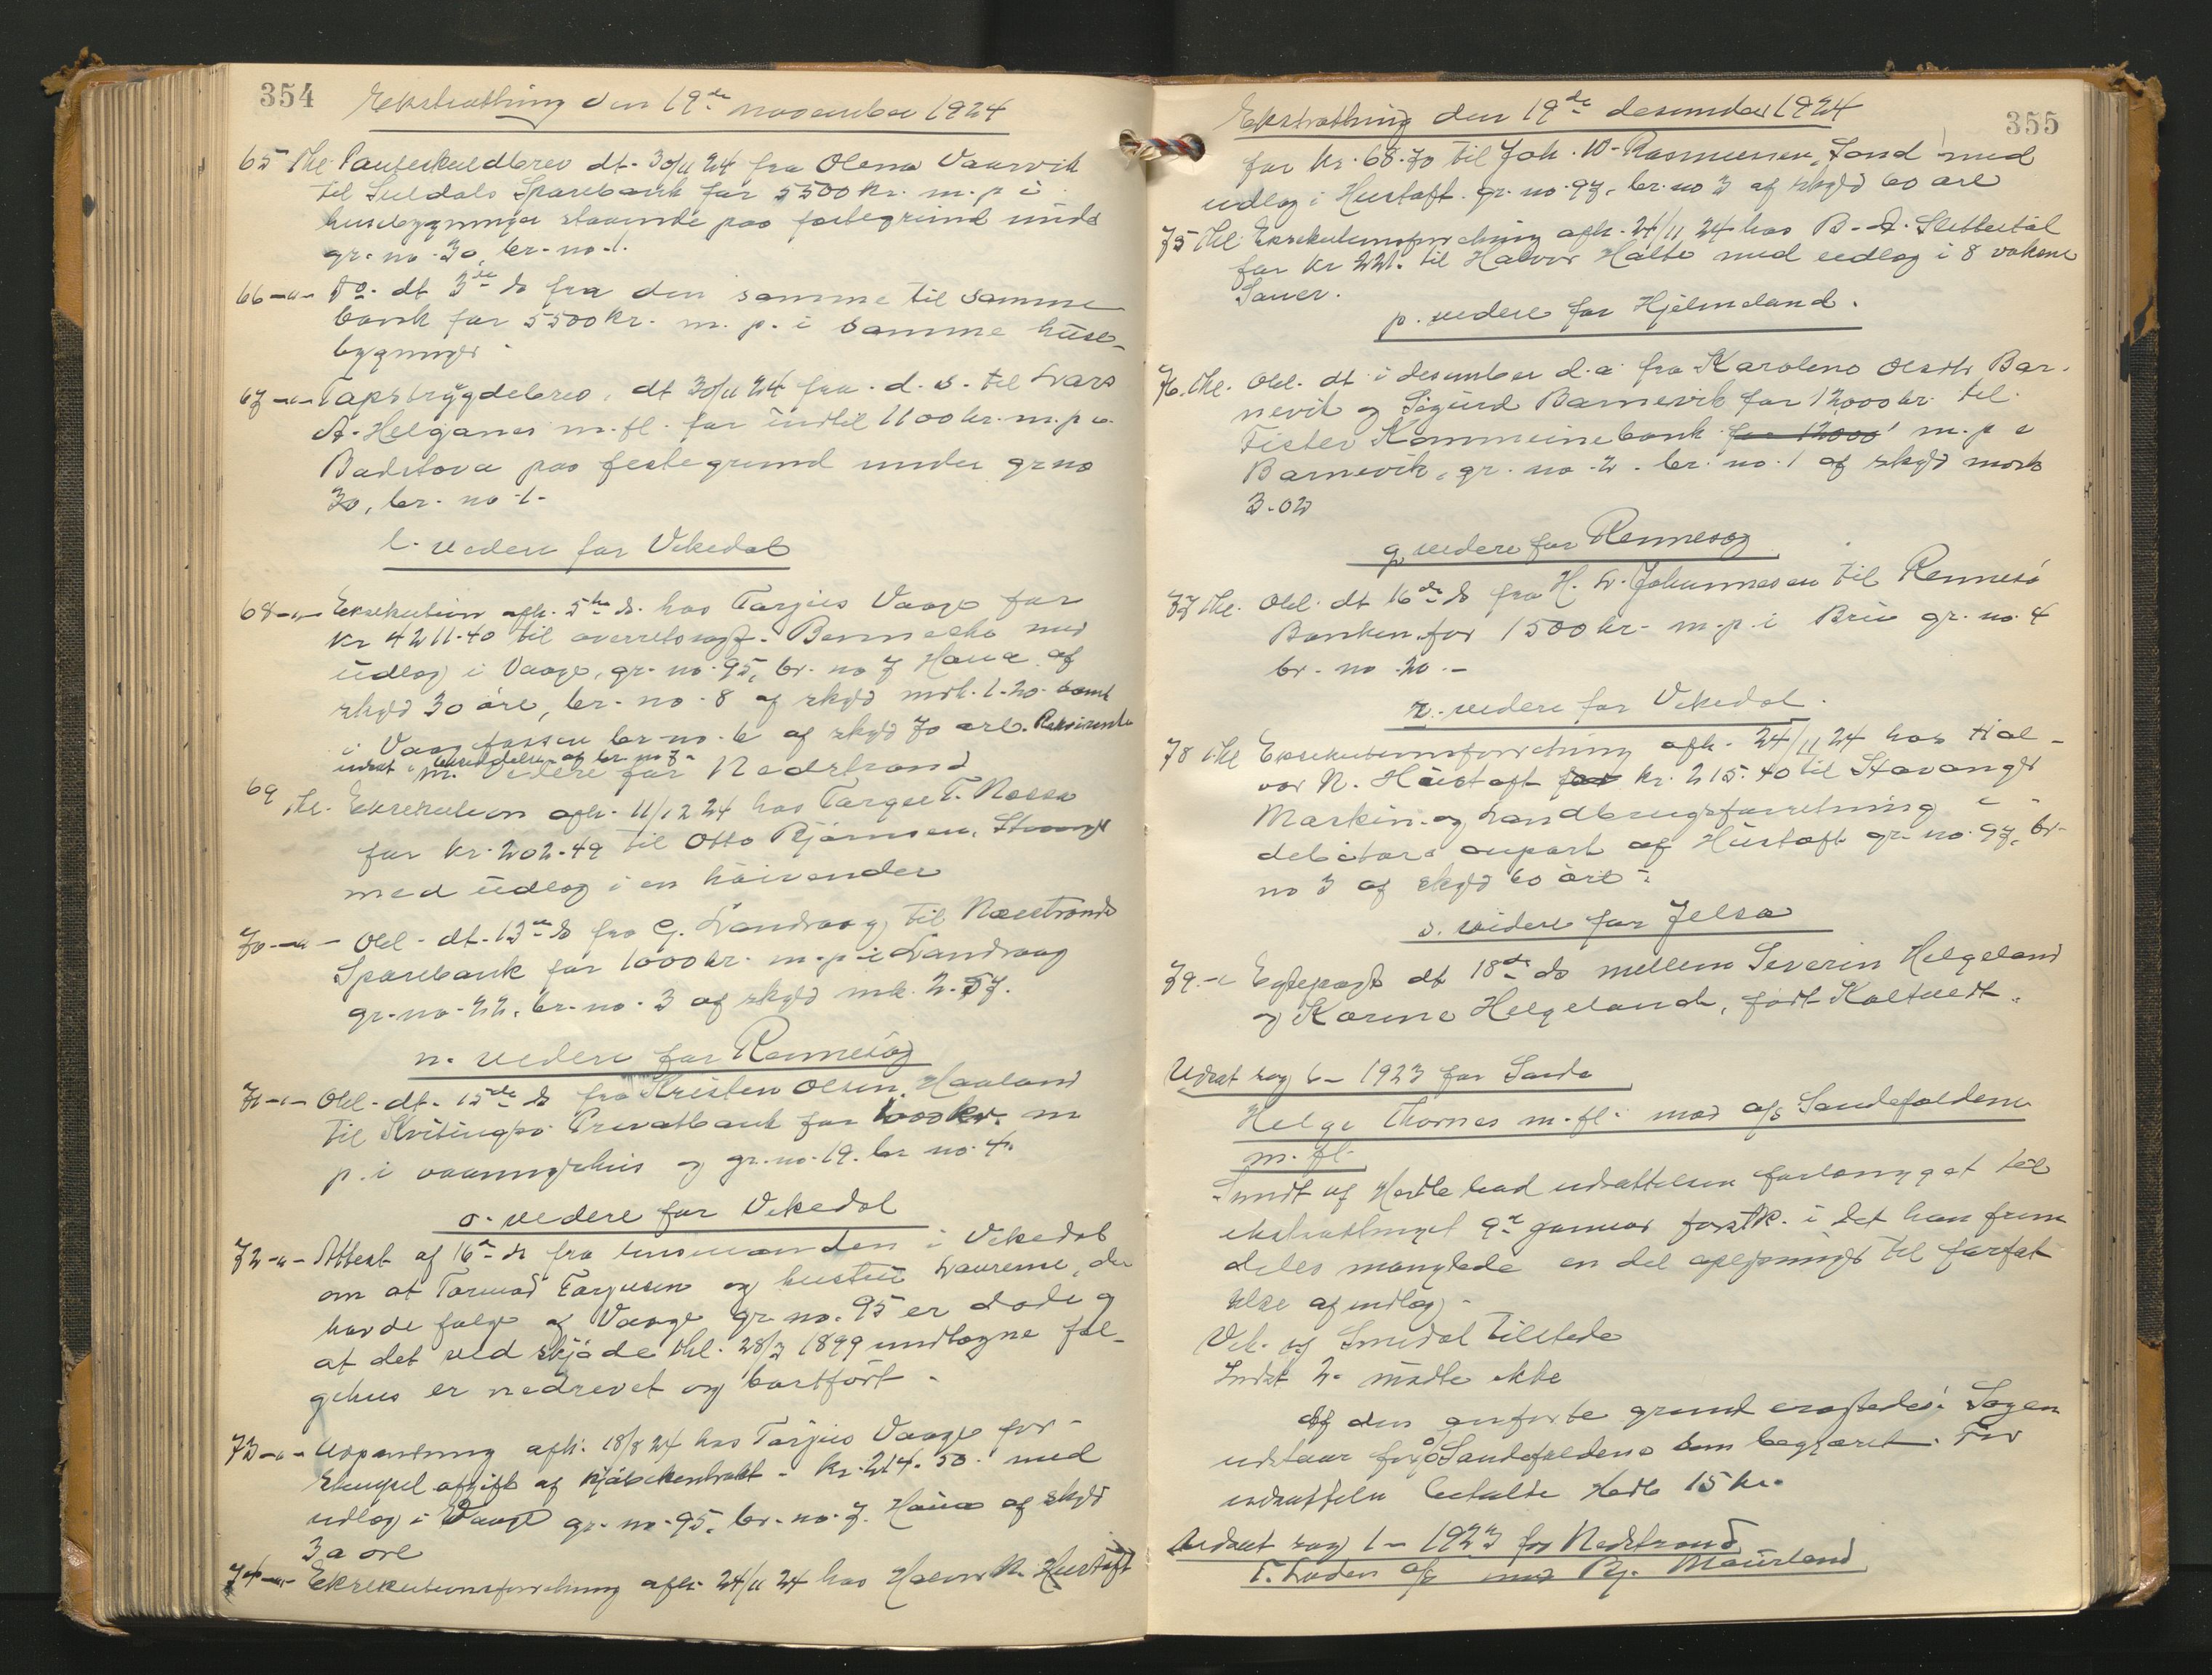 354
Ekstrathing den 19de november 1924
65 Thl. Panteskuldbrev dt. 30/11 24 fra Olena Vaarvik
til Suldals Sparebank for 5500 kr. m. p. i
husebygninger staaende paa festegrund under
gr. no. 30, br. no. 1.
66 -"- Do. dt 3de ds fra den samme til samme
bank for 5500 kr. m. p. i samme huse-
bygninger
67 -"- Tapstrygdebrev, dt 30/11 24 fra d. s. til Lars
A. Helganes m. fl. for indtil 1100 kr. m. p. i
Badstova paa festegrund under gr no
30, br. no 1.
l. videre for Vikedal
68 -"- Eksekution afh. 5te ds. hos Tarjus Vaage for
kr 4211.40 til overretssagf. Bennecke med
udlæg i Vaage, gr. no. 95, br. no 7 Haua af
skyld 30 øre, br. no. 8 af skyld mrk. 1.20 samt
i Vaag fossen br. no. 6 af skyld 70 øre. Rekvirenten
udsat i besiddelse af br. no 7.
m. Videre for Nedstrand
69 Thl. Eksekution afh. 11/12 24 hos Targee T. Næssa
for kr. 202.49 til Otto Bjørnsen, Stavanger
med udlæg i en høivender
70 -"- Obl. dt. 13de ds fra G. Landraag til Næstrands
Sparebank for 1000 kr. m. p. i Landraag
gr. no. 22, br. no. 3 af skyld mk. 2.57.
n. videre for Rennesøy
71 -"- Obl. dt. 15de ds fra Kristen Olsen Haaland
til Kvitingsø Privatbank for 1000 kr. m
p. i vaaningshus og gr. no. 19. br no. 4.
o. videre for Vikedal
72 -"- Attest af 16de ds fra lensmanden i Vikedal
om at Tormod Tarjusen og hustru Laurense, der
havde følge af Vaage gr. no. 95 er døde og
at det ved skjøde thl. 28/3 1899 undtagne føl-
gehus er nedrevet og bortført.
73 -"- Udpantning afh. 18/8 24 hos Tarjus Vaage for
stempel afgift af kjøbekontrakt - kr. 214.50. med
udlæg i Vaage gr. no. 95, br. no. 7. Haua af skyld
30 øre
74 -"- Eksekutionsforretning afh. 24/11 24 hos Halvor N. Hustoft
355
Ekstrathing den 19de desember 1924
for kr. 68.70 til Joh. W. Rasmussen, Sand med
udlæg i Hustoft. gr. no. 97, br. no 3 af skyld 60 øre
75 Thl. Eksekutionsforretning afh. 24/11 24 hos B. A. Slettedal
for kr 221. til Halvor Halte med udlæg i 8 voksne
Sauer.
p. videre for Hjelmeland.
76. Thl. Obl. dt i desember d. a. fra Karoline Olsdtr Bar-
nevik og Sigurd Barnevik for 12000 kr. til
Fister Kommunebank for 12000 m. p. i
Barnevik, gr. no. 2. br. no. 1 af skyld mark
3.02
q. videre for Rennesøy
77 Thl. Obl. dt 16de ds fra H. L. Johannesen til Rennesø
Banken for 1500 kr. m. p. i Bru gr. no. 4
br. no 20.-
r. videre for Vikedal.
78 Thl Eksekutionsforretning afh. 24/11 24 hos Hal-
vor N. Hustoft for kr. 215.40 til Stavanger
Maskin- og Landbrugsforretning i
debitors anpart af Hustoft gr. no. 97, br.
no 3 af skyld 60 øre.
s. videre for Jelsa
79. -"- Egtepagt dt 18de ds mellem Severin Helgeland
og Karine Helgeland, født Koltvedt.
Udsat sag 6 - 1923 for Sauda
Helge Thornes m. fl. mod A/S Saudefaldene
m. fl.
Smidt af Hertle bad udsættelsen forlænget til
ekstrathinget 9de januar førstk. i det han frem
deles manglede en del oplysninger til forfat
telse af indlæg.
Vik. og Smedal tilstede
Indst 2. mødte ikke
Af den anførte grund eragtedes: Sagen
udstaar for A/S Saudefaldene som begjæret. For
udsættelse betalte Hertle 15 kr.
Udsat sag 1 - 1923 for Nedstrand
T. Loden A/S mod Bj. Mæurland